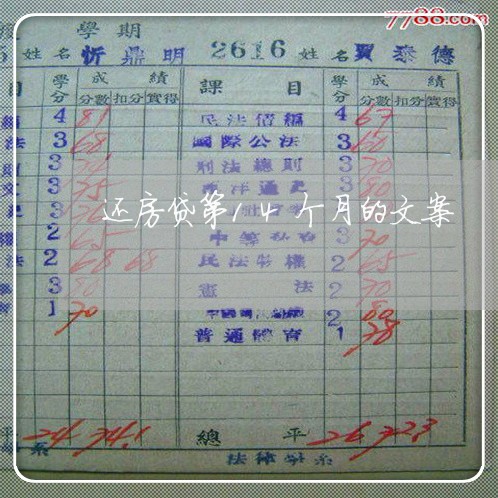 7788.com
學期
姓名 忻鼎明 2616 姓名 賈泰德
目 學分 成績 課目 學分 成績
分數 扣分 實得 分數 扣分 實得
4 81 民法債編 4 67
法 3 68 國際公法 3 60
3 刑法總則 3 70
3 75 西洋通史 3 80
还房贷第14个月的文案
2 65 3 70
法 2 68 68 民法物權 2 65
3 80 憲法 2 70
1 70 2 80
普通體育 1 78
平 24 74.1 總平 26 72.3
系 法律學系